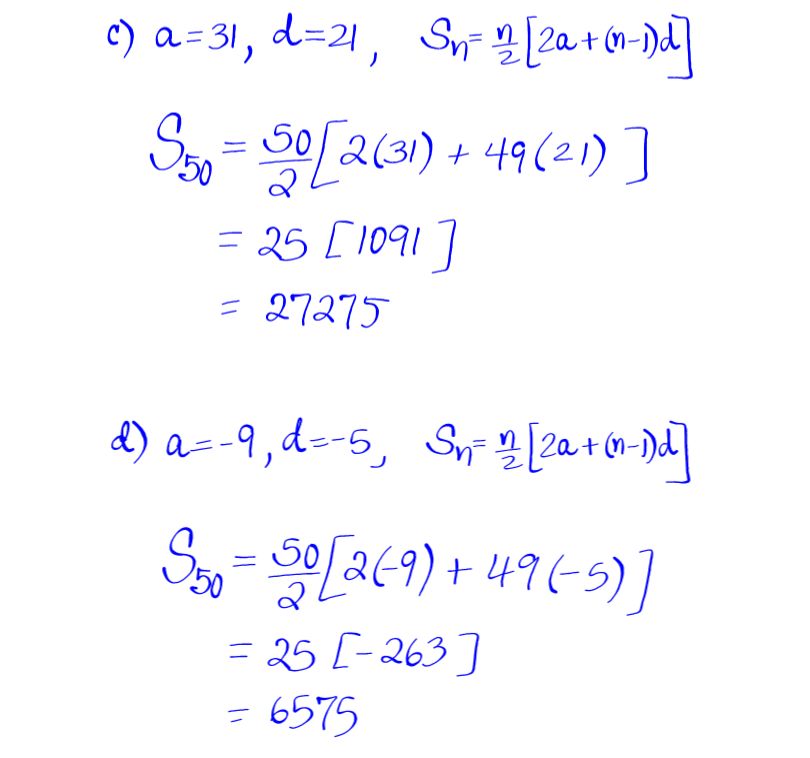 c) a=31, d=21, Sn= n/2 [2a+(n-1)d]
S50 = 50/2 [2(31) + 49(21)]
= 25 [1091]
= 27275
d) a=-9, d=-5, Sn= n/2 [2a+(n-1)d]
S50 = 50/2 [2(-9) + 49(-5)]
= 25 [-263]
= 6575